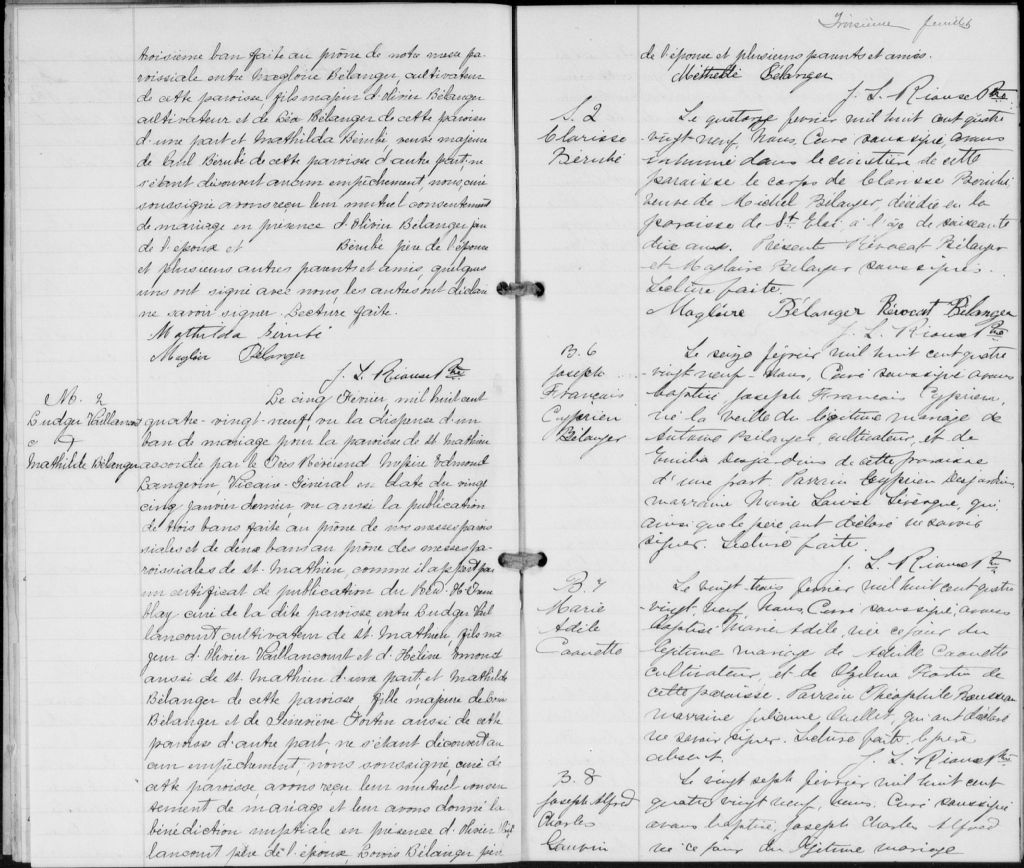 troisième ban faite au prône de notre messe pa
roissiale entre Magloire Bélanger, cultivateur
de cette paroisse, fils majeur d'Olivier Bélanger
cultivateur et de Léa Bélanger de cette paroisse
d'une part et Mathilda Bérubé veuve majeure
de Bérubé de cette paroisse d'autre part; ne
s'étant découvert aucun empêchement, nous, curé
soussigné avons reçu leur mutuel consentement
de mariage en présence d'Olivier Bélanger père
de l'époux et Bérubé père de l'épouse
et plusieurs autres parents et amis, quelques
uns ont signé avec nous, les autres ont déclaré
ne savoir signer. Lecture faite.
Mathilda Bérubé
Magloir Bélanger
J. L. Rioux Ptre
M. 2
Ludger Vaillancourt
&
Mathilde Bélanger
Le cinq Février, mil huit cent
quatre-vingt-neuf, vu la dispense d'un
ban de mariage pour la paroisse de St. Mathieu
accordée par le Très Révérend Messire Edmond
Langevin, Vicaire-Général en date du vingt
cinq janvier dernier vu aussi la publication
de trois bans faite au prône de nos messes parois
siales et de deux bans au prône des messes pa-
roissiales de St. Mathieu, comme il appert par
un certificat de publication du Rév. H.
curé de la dite paroisse, entre Ludger Vail
lancourt cultivateur de St. Mathieu, fils ma
jeur d'Olivier Vaillancourt et d'Hélène Emond
aussi de St. Mathieu d'une part, et Mathilde
Bélanger de cette paroisse, fille majeure de Louis
Bélanger et de Geneviève Fortin aussi de cette
paroisse d'autre part, ne s'étant découvert au
cun empêchement, nous soussigné curé de
cette paroisse, avons reçu leur mutuel consen
tement de mariage et leur avons donné la
bénédiction nuptiale en présence d'Olivier Vail
lancourt père de l'époux, Louis Bélanger père
Troisième feuillet
de l'épouse et plusieurs parents et amis.
Bélanger
J. L. Rioux Ptre
S. 2
Clarisse
Bérubé
Le quatorze février mil huit cent quatre
vingt neuf, Nous, Curé soussigné, avons
inhumé dans le cimetière de cette
paroisse le corps de Clarisse Bérubé
veuve de Michel Bélanger, décédée en la
paroisse de St. Eloi à l'âge de soixante
dix ans. Présents Révocat Bélanger
et Magloire Bélanger soussignés.
Lecture faite.
Magloire Bélanger Révocat Bélanger
J. L. Rioux Ptre
B. 6
Joseph
Francois
Cyprien
Bélanger
Le seize février mil huit cent quatre
-vingt neuf - Nous, Curé soussigné avons
baptisé Joseph Francois Cyprien,
né la veille du légitime mariage de
Antoine Bélanger, cultivateur, et de
Emilia Desjardins de cette paroisse
d'une part. Parrain Cyprien Desjardins,
marraine Marie Louise Lévesque, qui
ainsi que le père ont déclaré ne savoir
signer. Lecture faite.
J. L. Rioux Ptre
B. 7
Marie
Adèle
Caouette
Le vingt trois février mil huit cent quatre
-vingt, neuf, Nous, Curé soussigné, avons
baptisé Marie Adèle, née ce jour du
légitime mariage de Caouette
cultivateur, et de Ozelma Fortin de
cette paroisse. Parrain Théophile Rousseau
marraine Julienne Ouellet, qui ont déclaré
ne savoir signer. Lecture faite. le père
absent.
J. L. Rioux Ptre
B. 8
Joseph Alfred
Charles
Gauvin
Le vingt sept février mil huit cent
quatre vingt neuf, nous, Curé soussigné
avons baptisé Joseph Charles Alfred
né ce jour du légitime mariage